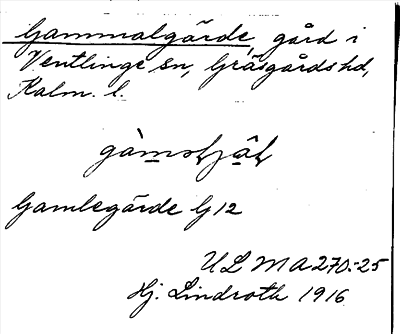 Gammalgärde, gård i
Ventlinge sn, Gräsgårds hd,
Kalm. l.
Gamlegärde G 12
ULMA 270:-25
Hj. Lindroth 1916